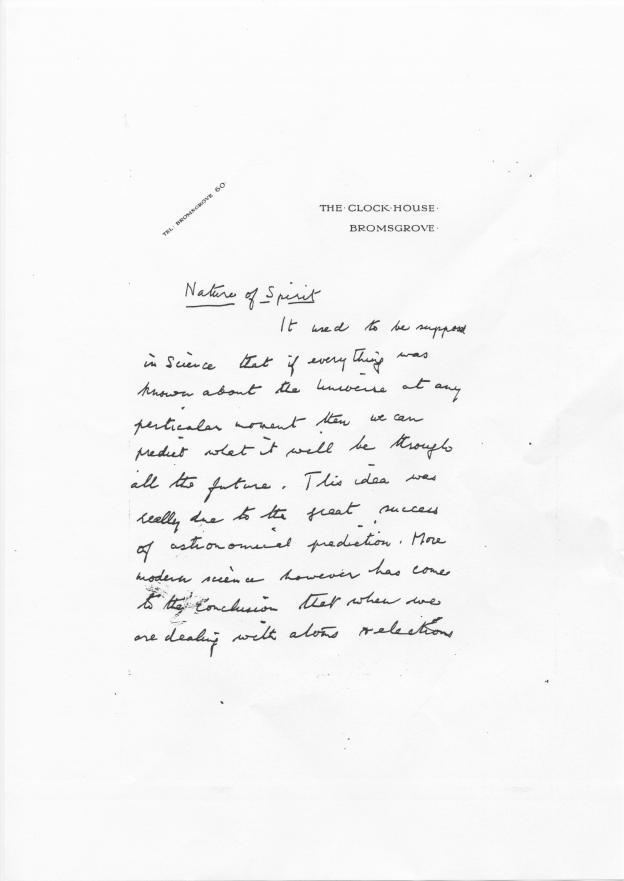 TEL. BROMSGROVE 60
THE·CLOCK·HOUSE·
BROMSGROVE·
Nature of Spirit
It used to be supposed
in Science that if everything was
known about the Universe at any
particular moment then we can
predict what it will be through
all the future. This idea was
really due to the great success
of astronomical prediction. More
modern science however has come
to the conclusion that when we
are dealing with atoms & electrons